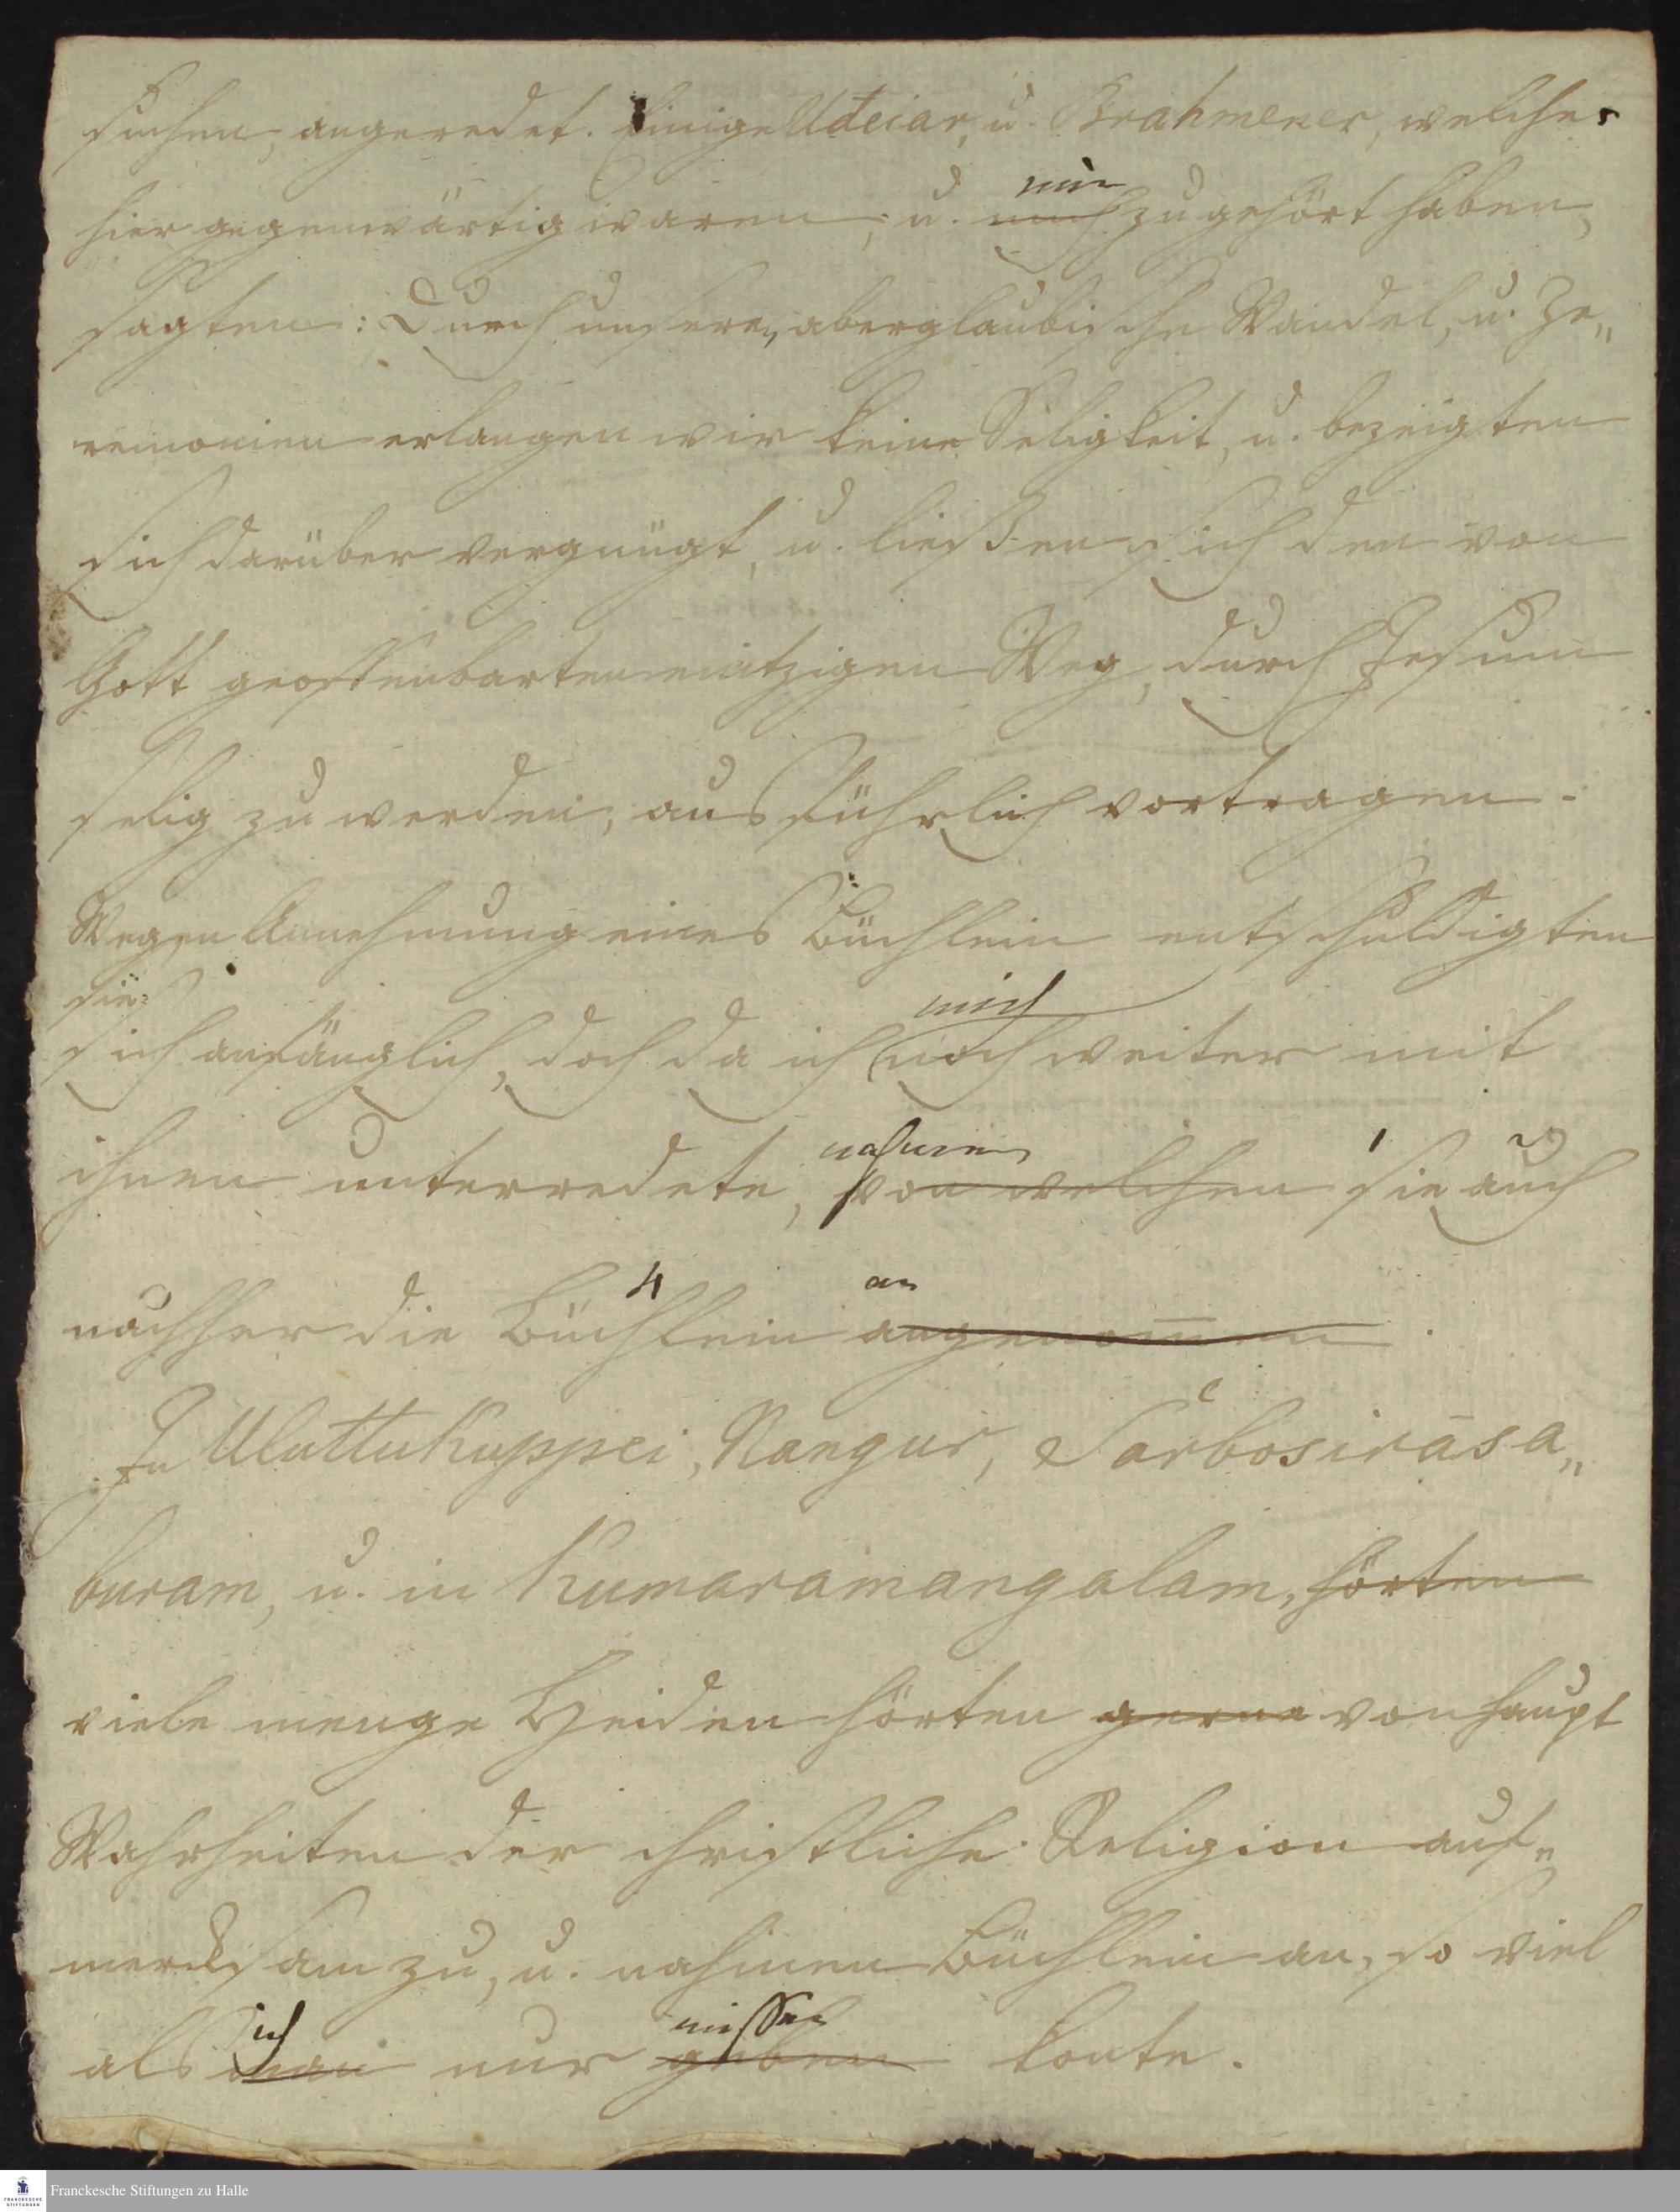 suchen, angeredet. Einige Udeiar, u. Brahmener, welche
hier gegenwärtig waren, u. mir
mich zugehört haben,
sagten: Durch unseren abergläubische Wandel, u. Ze„
remonien erlangen wir keine Seligkeit, u. bezeigten
sich darüber vergnügt, u. ließen sich den von
Gott geoffenbarten eintzigen Weg, durch Jesum
selig zu werden, ausführlich vortragen.
Wegen Annehmung eines Büchlein entschuldigten
sie
mich
sich anfänglich, doch da ich noch weiter mit
nahmen 1 2
ihnen unterredete, von welchen sie auch
4 an
nachher die Büchlein angenom̄en.
In Uluttukuppei, Nangur, Sarbosirāsa„
buram, u. in Kumaramangalam, hörten
viele menge Heiden hörten gerne von haupt
Wahrheiten der christliche Religion auf„
mercksam zu, u. nahmen Büchlein an, so viel
ich missen
als man nur geben konte.
Franckesche Stiftungen zu Halle